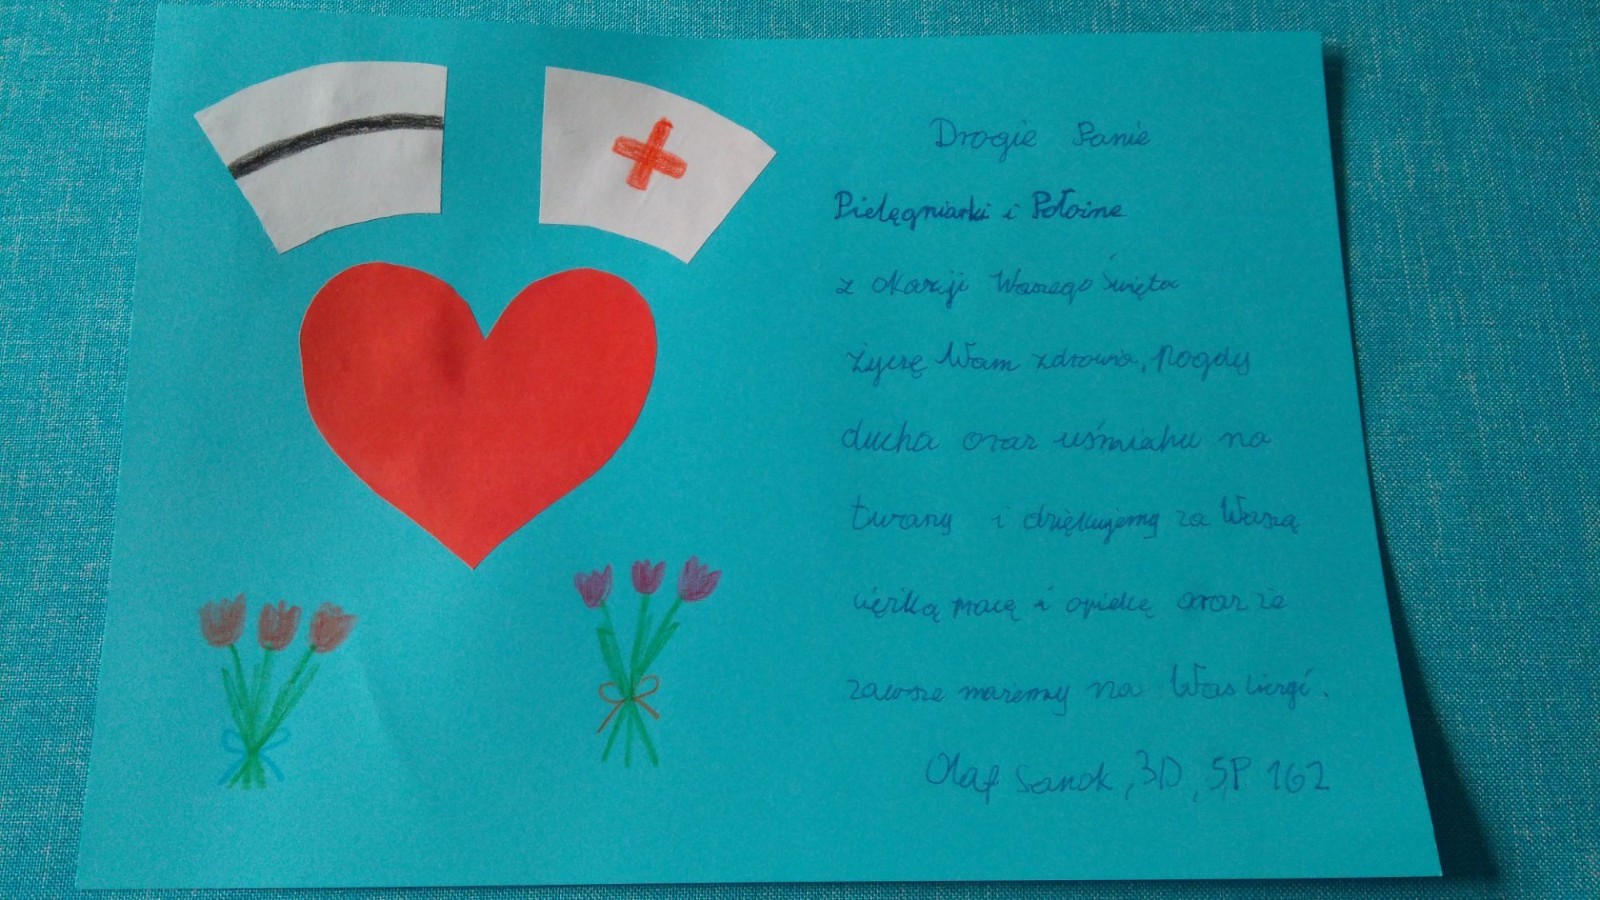 Drogie Panie
Pielęgniarki i Położne
z okazji Waszego Święta
życzę Wam zdrowia, pogody
ducha oraz uśmiechu na
twarzy i dziękujemy za Waszą
ciężką pracę i opiekę oraz że
zawsze możemy na Was liczyć.
Olaf Sanok, 3D, SP 162